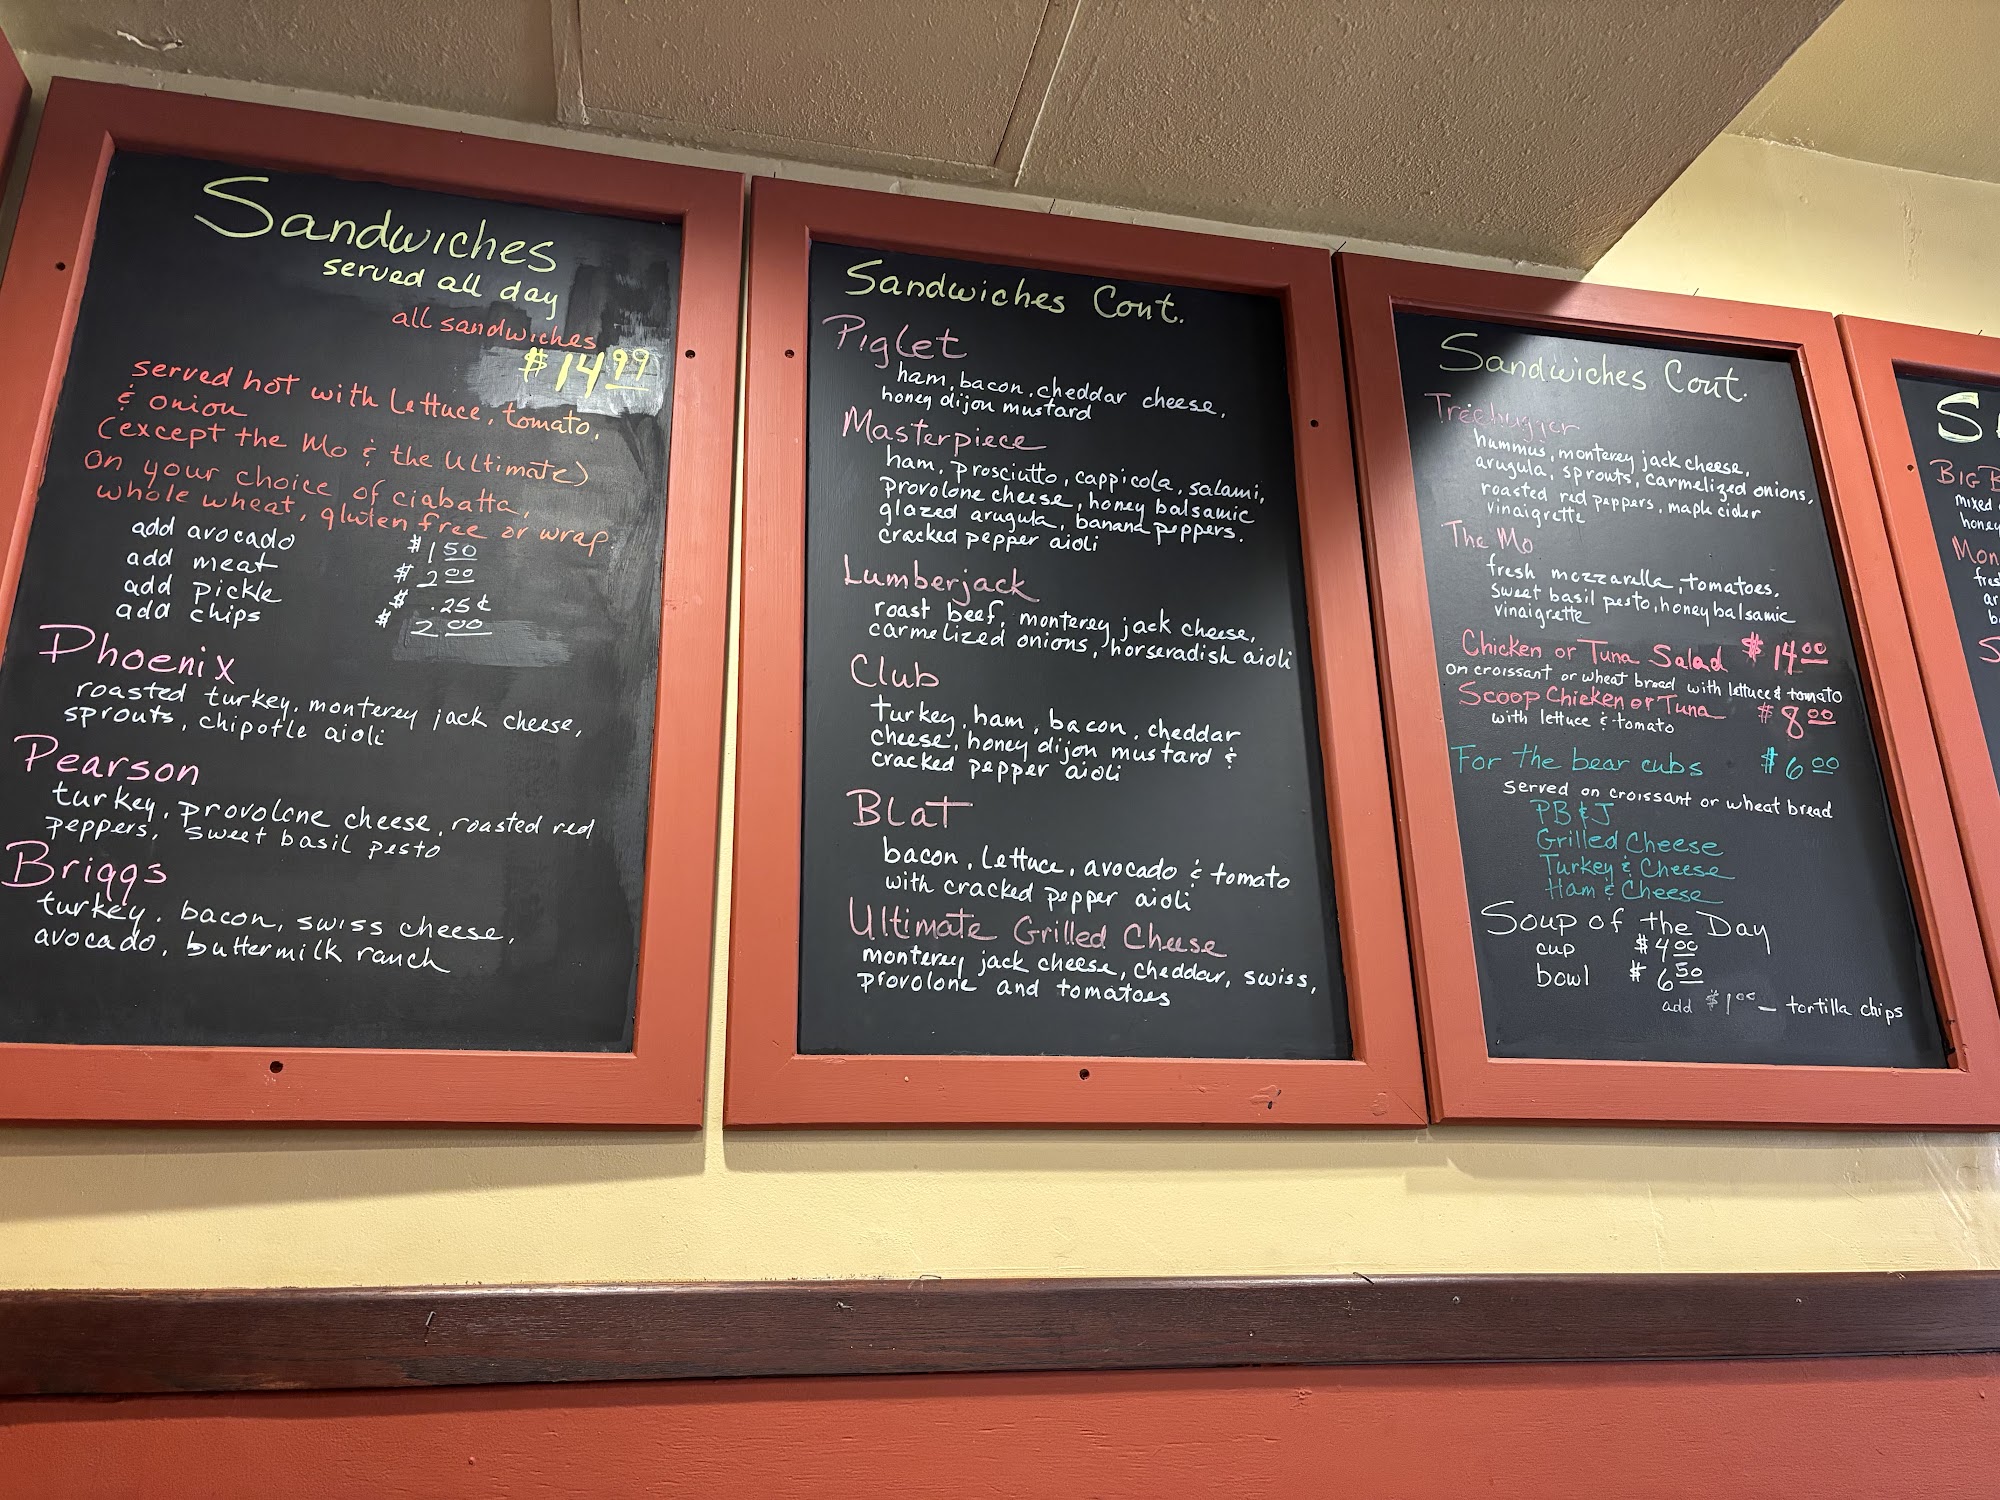 Sandwiches
served all day
all sandwiches
$14.99
served hot with Lettuce, tomato,
& onion
(except the Mo & the Ultimate)
on your choice of ciabatta,
whole wheat, gluten free or wrap
add avocado $1 50
add meat $2 00
add pickle $ .25¢
add chips $2 00
Phoenix
roasted turkey, monterey jack cheese,
sprouts, chipotle aioli
Pearson
turkey, provolone cheese, roasted red
peppers, sweet basil pesto
Briggs
turkey, bacon, swiss cheese,
avocado, buttermilk ranch
Sandwiches Cont.
Piglet
ham, bacon, cheddar cheese,
honey dijon mustard
Masterpiece
ham, prosciutto, cappicola, salami,
provolone cheese, honey balsamic
glazed arugula, banana peppers,
cracked pepper aioli
Lumberjack
roast beef, monterey jack cheese,
carmelized onions, horseradish aioli
Club
turkey, ham, bacon, cheddar
cheese, honey dijon mustard &
cracked pepper aioli
BLaT
bacon, Lettuce, avocado & tomato
with cracked pepper aioli
Ultimate Grilled Cheese
monterey jack cheese, cheddar, swiss,
provolone and tomatoes
Sandwiches Cont.
Treehugger
hummus, monterey jack cheese,
arugula, sprouts, carmelized onions,
roasted red peppers, maple cider
vinaigrette
The Mo
fresh mozzarella, tomatoes,
sweet basil pesto, honey balsamic
vinaigrette
Chicken or Tuna Salad $14 00
on croissant or wheat bread with lettuce & tomato
Scoop Chicken or Tuna $8 00
with lettuce & tomato
For the bear cubs $6 00
served on croissant or wheat bread
PB & J
Grilled Cheese
Turkey & Cheese
Ham & Cheese
Soup of the Day
cup $4 00
bowl $6 50
add $1 00 – tortilla chips
BIG B
mixed
honey
Mon